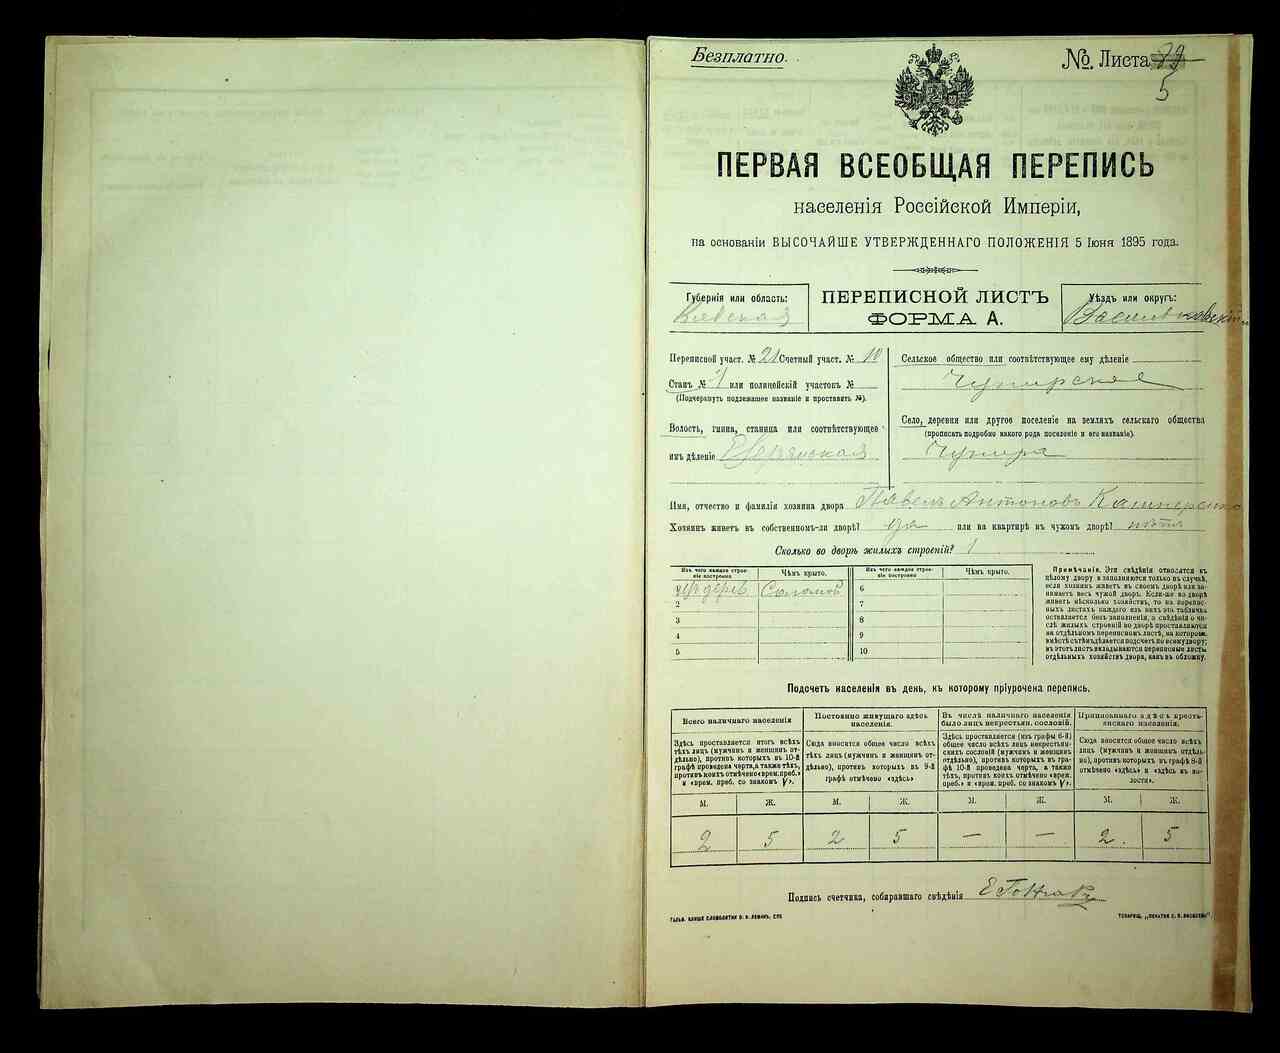 Безплатно.
№. Листа 22
5
ПЕРВАЯ ВСЕОБЩАЯ ПЕРЕПИСЬ
населенія Россійской Имперіи,
на основаніи ВЫСОЧАЙШЕ УТВЕРЖДЕННАГО ПОЛОЖЕНІЯ 5 Іюня 1895 года.
Губернія или область:
Кіевская
ПЕРЕПИСНОЙ ЛИСТЪ
ФОРМА А.
Уѣздъ или округъ:
Васильковскій
Переписной участ. № 21 Счетный участ. № 10
Станъ № 1 или полицейскій участокъ №
(Подчеркнуть подлежащее названіе и проставить №).
Волость, гмина, станица или соотвѣтствующее
имъ дѣленіе
Сельское общество или соотвѣтствующее ему дѣленіе
Чупирское
Село, деревня или другое поселеніе на земляхъ сельскаго общества
(прописать подробно какого рода поселеніе и его названіе).
Чупира
Имя, отчество и фамилія хозяина двора Павелъ Антоновъ Кашперенко
Хозяинъ живетъ въ собственномъ-ли дворѣ? да или на квартирѣ въ чужомъ дворѣ? нѣтъ
Сколько во дворѣ жилыхъ строеній? 1
Изъ чего каждое строеніе построено
Чѣмъ крыто.
Изъ чего каждое строеніе построено
Чѣмъ крыто.
1 дерев. Соломой 6
2 7
3 8
4 9
5 10
Примѣчанія. Эти свѣдѣнія относятся къ
цѣлому двору и заполняются только въ случаѣ,
если хозяинъ живетъ въ своемъ дворѣ или занимаетъ
весь чужой дворъ. Если-же во дворѣ
живетъ нѣсколько хозяйствъ, то на переписныхъ
листахъ каждаго изъ нихъ эта табличка
оставляется безъ заполненія, а свѣдѣнія о числѣ
жилыхъ строеній во дворѣ проставляются
на отдѣльномъ переписномъ листѣ, на которомъ
вмѣстѣ съ тѣмъ дѣлается подсчетъ по всему двору;
въ этотъ листъ вкладываются переписные листы
отдѣльныхъ хозяйствъ двора, какъ въ обложку.
Подсчетъ населенія въ день, къ которому пріурочена перепись.
Всего наличнаго населенія
Здѣсь проставляется итогъ всѣхъ
тѣхъ лицъ (мужчинъ и женщинъ отдѣльно),
противъ которыхъ въ 10-й
графѣ проведена черта, а также тѣхъ,
противъ коихъ отмѣчено «врем. преб.»
и «врем. преб. со знакомъ V».
Постоянно живущаго здѣсь
населенія.
Сюда вносится общее число всѣхъ
тѣхъ лицъ (мужчинъ и женщинъ отдѣльно),
противъ которыхъ въ 9-й
графѣ отмѣчено «здѣсь»
Въ числѣ наличнаго населенія
было лицъ некрестьян. сословій.
Здѣсь проставляется (изъ графы 6-й)
общее число всѣхъ лицъ некрестьянскихъ
сословій (мужчинъ и женщинъ
отдѣльно), противъ которыхъ въ графѣ
10-й проведена черта, а также
тѣхъ, противъ коихъ отмѣчено «врем.
преб.» и «врем. преб. со знакомъ V».
Приписаннаго здѣсь крестьянскаго населенія.
Сюда вносится общее число всѣхъ
лицъ (мужчинъ и женщинъ отдѣльно),
противъ которыхъ въ графѣ 8-й
отмѣчено «здѣсь» и «здѣсь въ волости».
М. Ж. М. Ж. М. Ж. М. Ж.
2 5 2 5 — — 2. 5
Подпись счетчика, собиравшаго свѣдѣнія